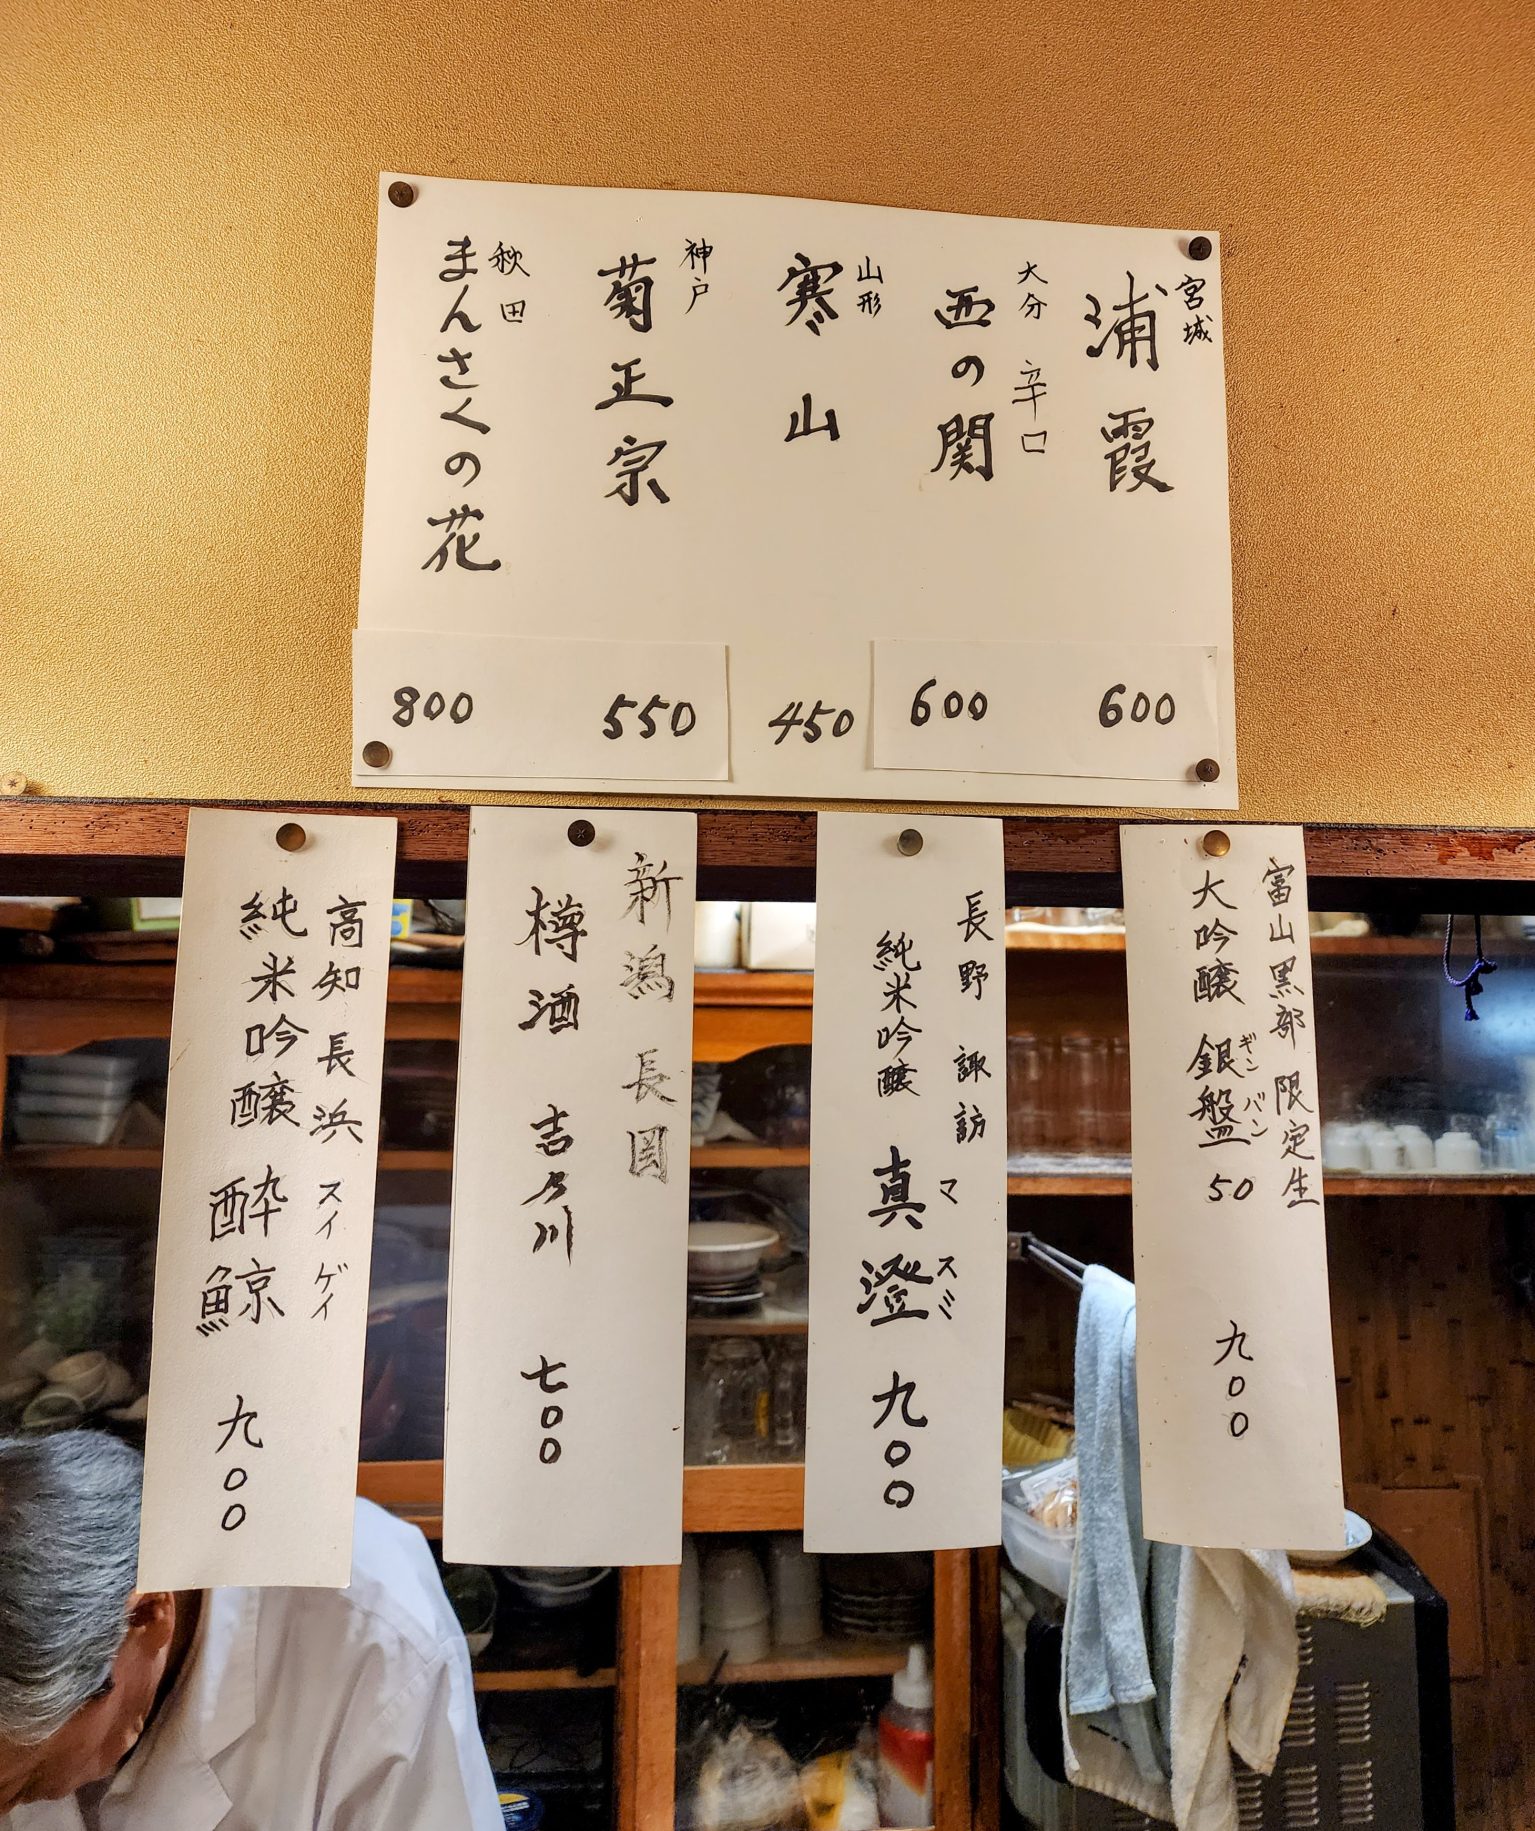 宮城
浦霞
600
大分 辛口
西の関
600
山形
寒山
450
神戸
菊正宗
550
秋田
まんさくの花
800
富山黒部 限定生
大吟醸 銀盤 50 九〇〇
ギンバン
長野 諏訪
純米吟醸 真澄 九〇〇
マスミ
新潟 長岡
樽酒 吉乃川 七〇〇
高知 長浜 スイゲイ
純米吟醸 酔鯨 九〇〇